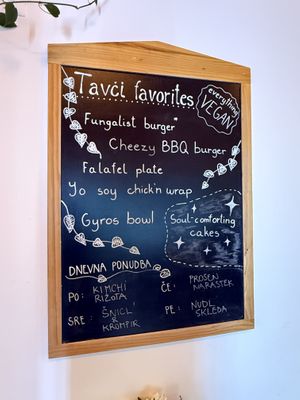 Tavči favorites
everything
VEGAN!
Fungalist burger"
Cheezy BBQ burger
Falafel plate
Yo soy chick'n wrap
Gyros bowl
Soul-comforting
cakes
DNEVNA PONUDBA
PO: KIMCHI
RIŽOTA
SRE: ŠNICL
&
KROMPIR
ČE: PROSEN
NARASTEK
PE: NUDL
SKLEDA